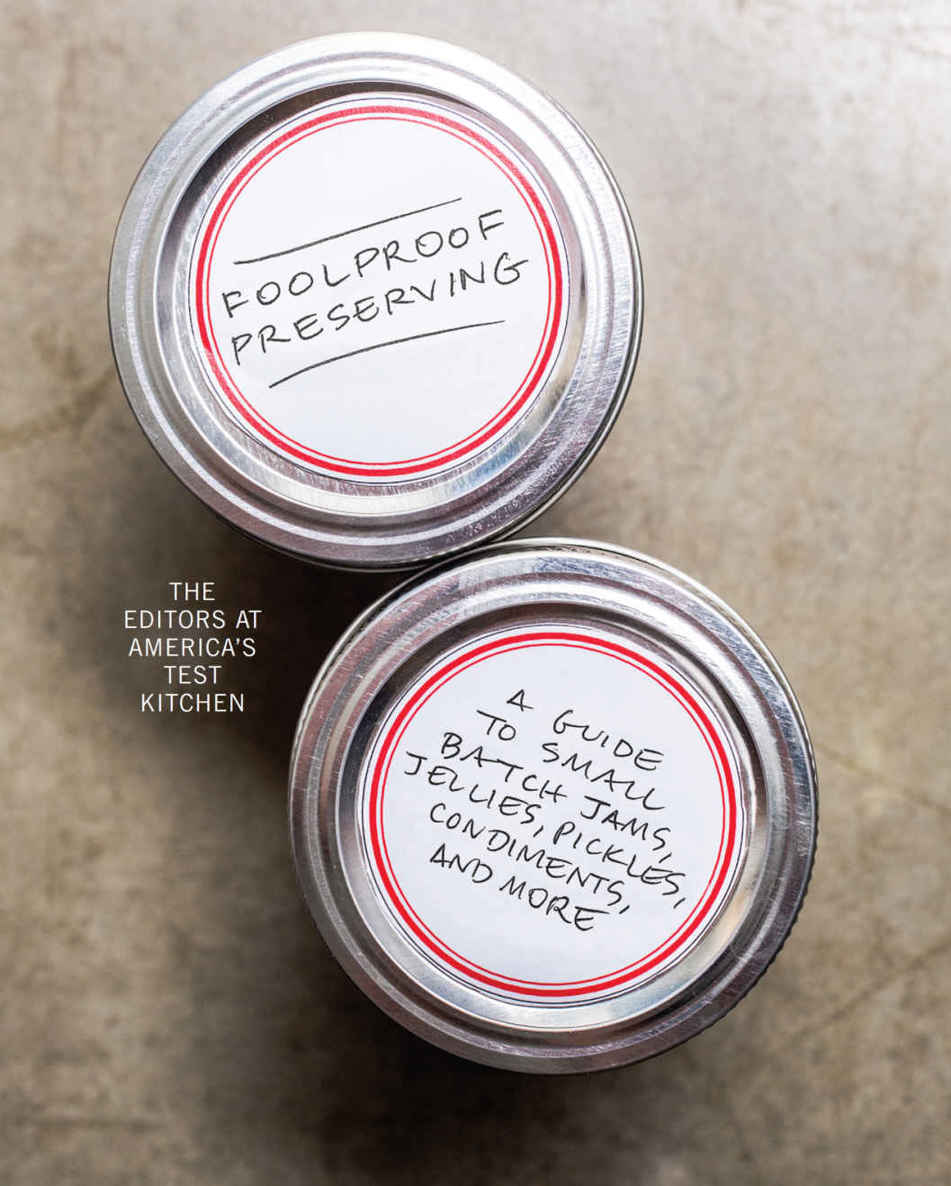 FOOLPROOF
PRESERVING
THE
EDITORS AT
AMERICA'S
TEST
KITCHEN
A GUIDE
TO SMALL
BATCH JAMS,
JELLIES, PICKLES,
CONDIMENTS,
AND MORE